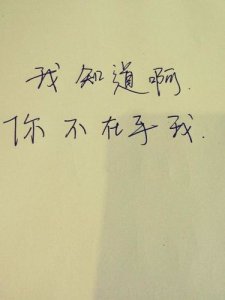 我知道啊.
你不在乎我.